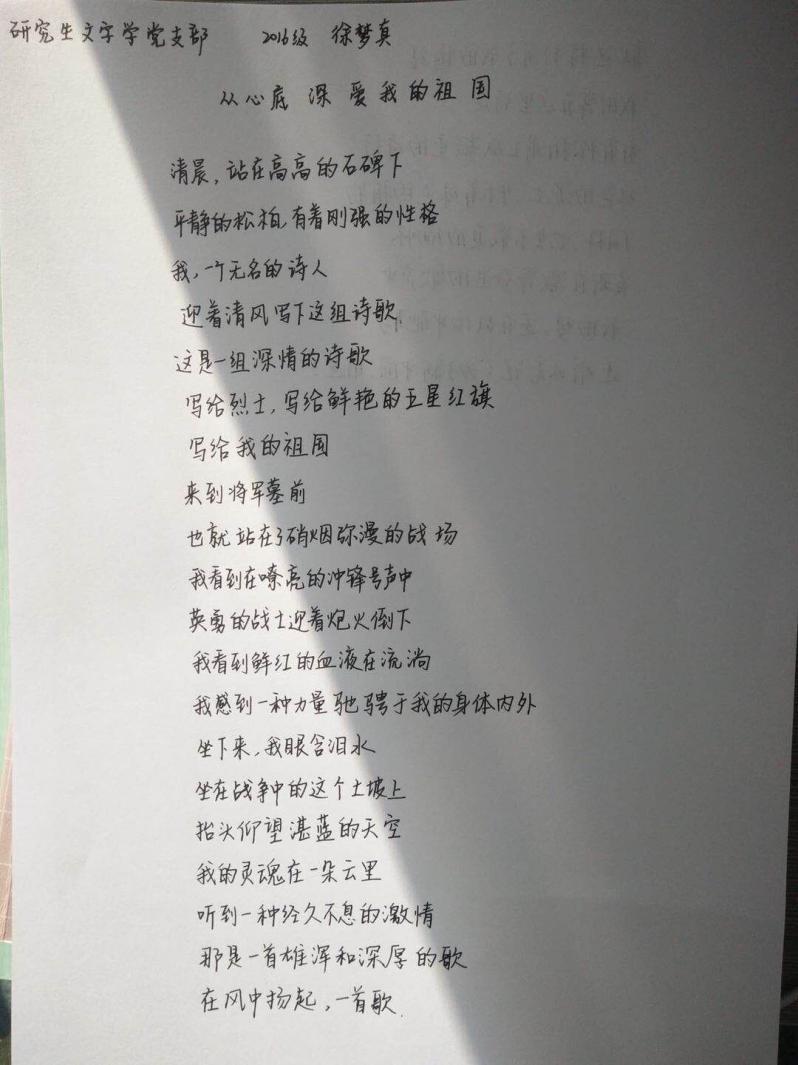 研究生文字学党支部 2016级 徐梦真
从心底深爱我的祖国
清晨，站在高高的石碑下
平静的松柏，有着刚强的性格
我，一个无名的诗人
迎着清风写下这组诗歌
这是一组深情的诗歌
写给烈士，写给鲜艳的五星红旗
写给我的祖国
来到将军墓前
也就站在了硝烟弥漫的战场
我看到在嘹亮的冲锋号声中
英勇的战士迎着炮火倒下
我看到鲜红的血液在流淌
我感到一种力量驰骋于我的身体内外
坐下来，我眼含泪水
坐在战争中的这个土坡上
抬头仰望湛蓝的天空
我的灵魂在一朵云里
听到一种经久不息的激情
那是一首雄浑和深厚的歌
在风中扬起，一首歌